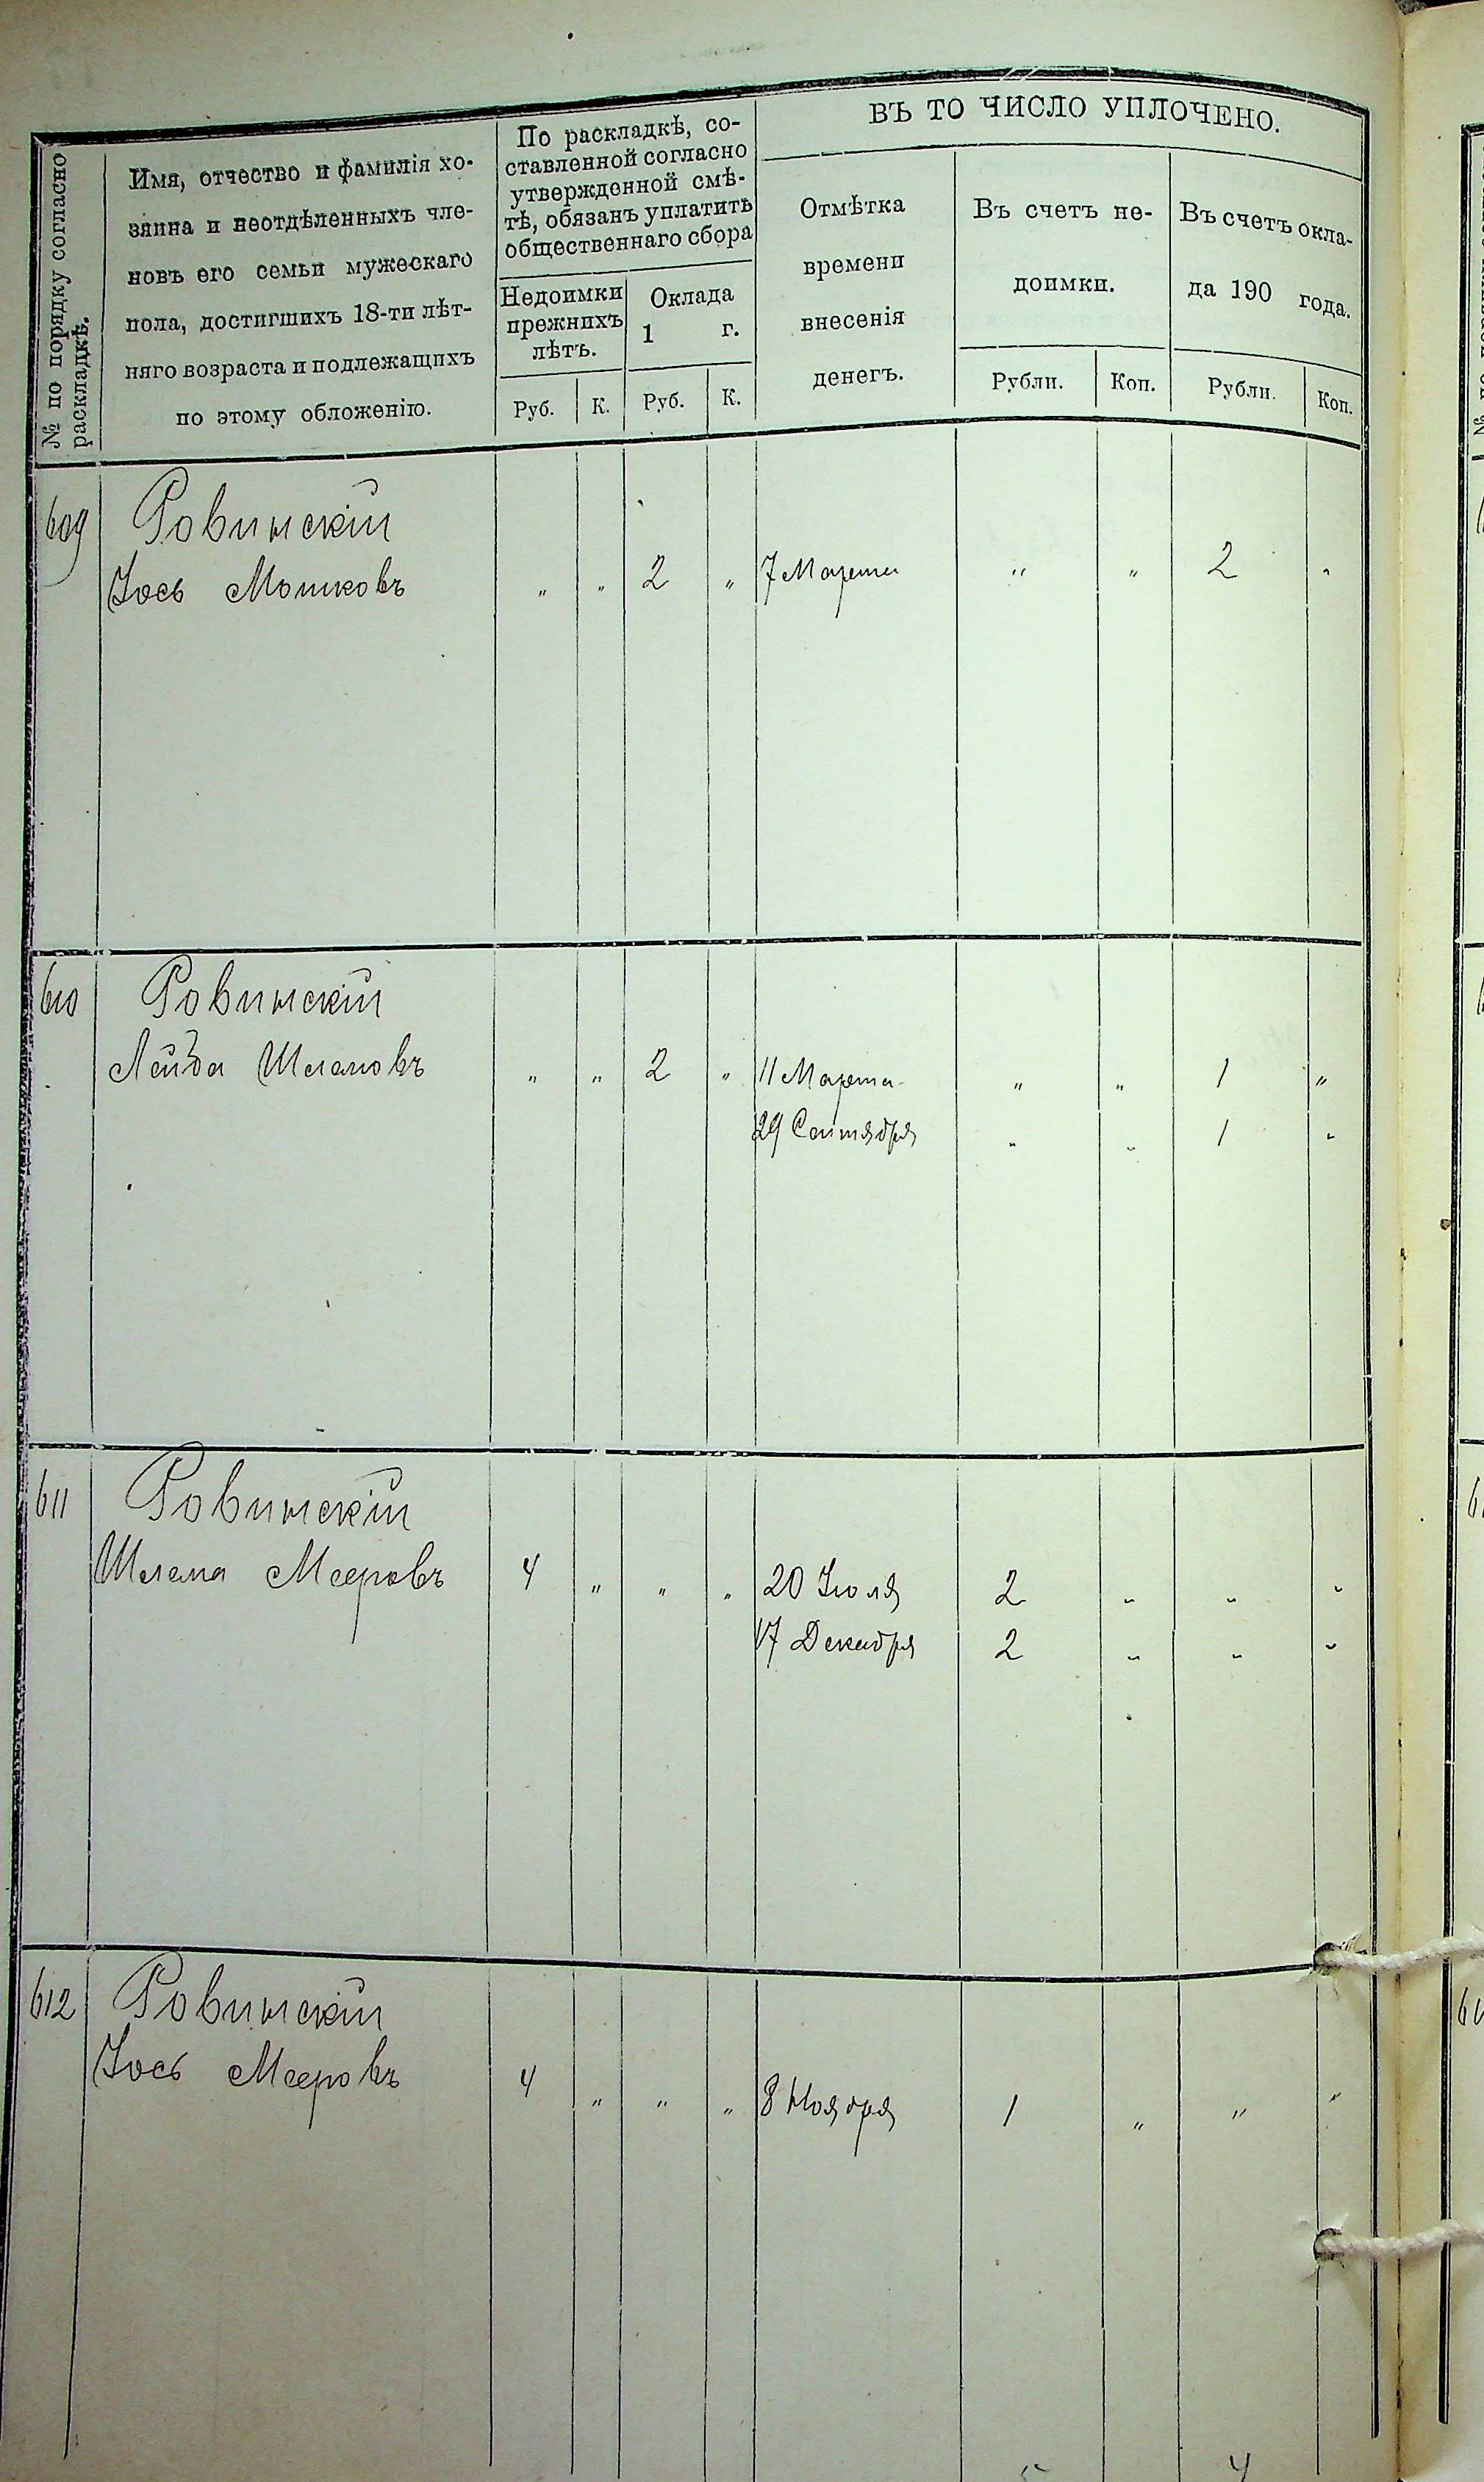 ВЪ ТО ЧИСЛО УПЛОЧЕНО.
№ по порядку согласно
раскладкѣ.
Имя, отчество и фамилія хо-
зяина и неотдѣленныхъ чле-
новъ его семьи мужескаго
пола, достигшихъ 18-ти лѣт-
няго возраста и подлежащихъ
по этому обложенію.
По раскладкѣ, со-
ставленной согласно
утвержденной смѣ-
тѣ, обязанъ уплатить
общественнаго сбора
Недоимки
прежнихъ
лѣтъ.
Оклада
1 г.
Руб. К. Руб. К.
Отмѣтка
времени
внесенія
денегъ.
Въ счетъ не-
доимки.
Рубли. Коп.
Въ счетъ окла-
да 190 года.
Рубли. Коп.
609 Ровинскій
Іось Мошковъ " " 2 " 7 Марта " " 2 "
610 Ровинскій
Лейба Шлемовъ " " 2 " 11 Марта " " 1 "
29 Сентября " " 1 "
611 Ровинскій
Шлема Мееровъ 4 " " " 20 Іюля 2 " " "
17 Декабря 2 " " "
612 Ровинскій
Іось Мееровъ 4 " " " 8 Ноября 1 " " "
5 4